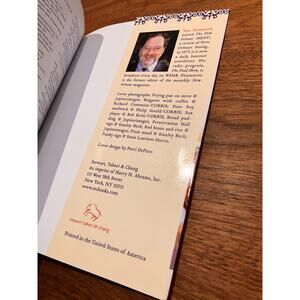 Tom Fitzmorris
started The New
Orleans MENU,
a review of New
Orleans dining,
in 1977; it is now
a daily Internet
newsletter. His
radio program,
The Food Show, is
broadcast every day on WSMB. Fitzmorris
is the former editor of the monthly New
Orleans magazine.
Cover photographs: Frying pan on stove ©
Jupiterimages; Beignets with coffee ©
Richard Cummins/CORBIS; Poor boy
sandwich © Philip Gould/CORBIS; Sax
player © Bob Krist/CORBIS; Bread pud-
ding © Jupiterimages; Preservation Hall
sign © Stanley Beck; Red beans and rice ©
Jupiterimages; Fruit stand © Stanley Beck;
Funky sign © Jason Laurence Harvis.
Cover design by Patti DeFino
Stewart, Tabori & Chang
An imprint of Harry N. Abrams, Inc.
115 West 18th Street
New York, NY 10011
www.stcbooks.com
stewart tabori & chang
Printed in the United States of America